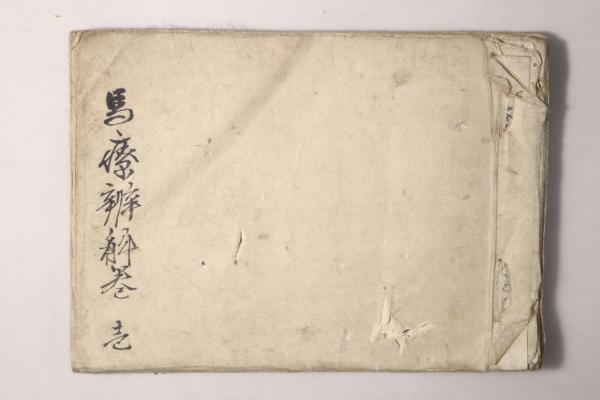 馬療辨解巻 壱